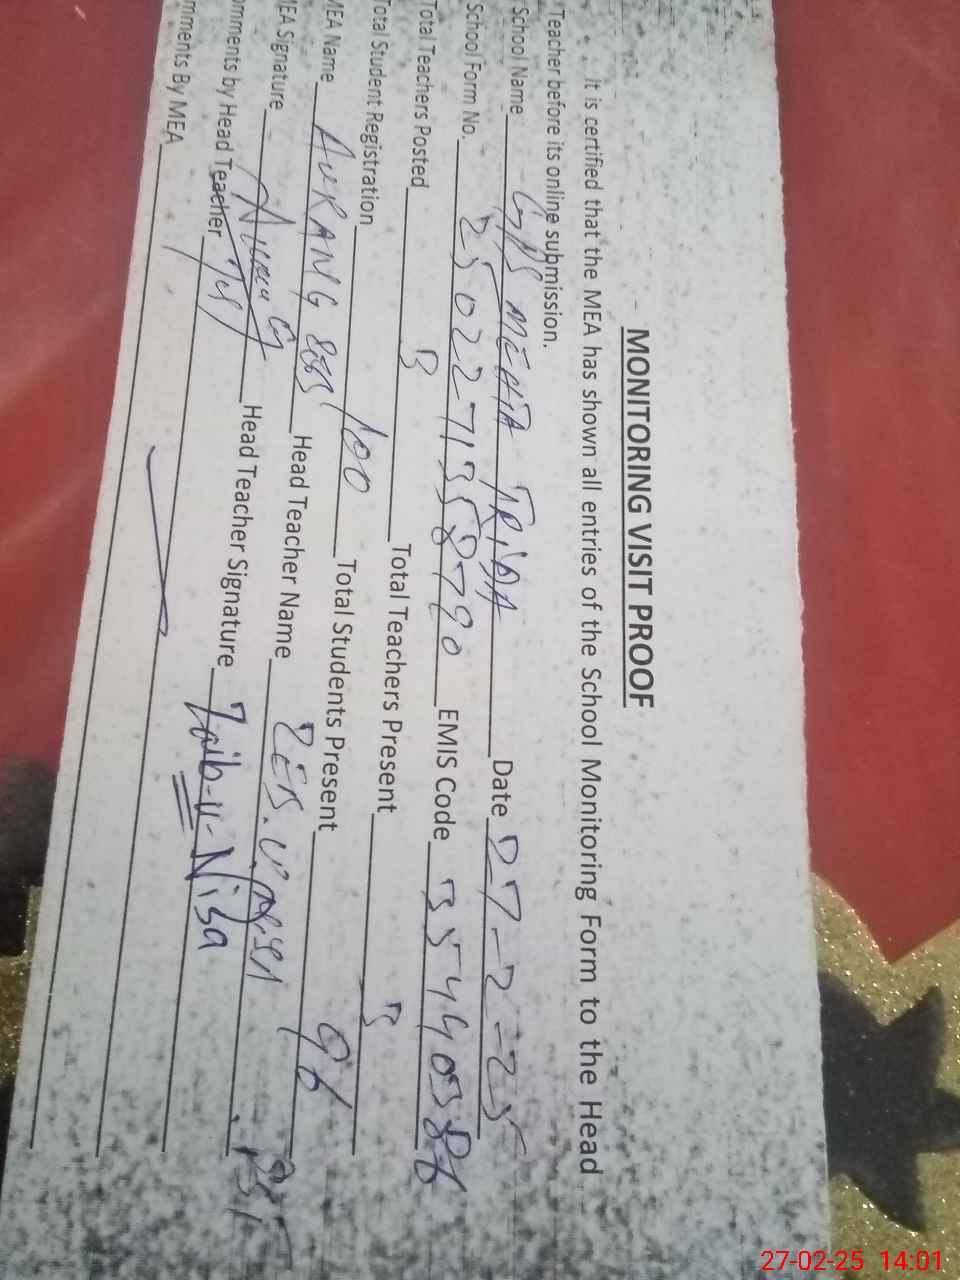 MONITORING VISIT PROOF
It is certified that the MEA has shown all entries of the School Monitoring Form to the Head
Teacher before its online submission.
School Name GPS MEHTA Date 27-2-25
School Form No. EMIS Code
Total Teachers Posted 3 Total Teachers Present 3
Total Student Registration 100 Total Students Present 96
MEA Name AURANG Head Teacher Name
MEA Signature Head Teacher Signature Zaib-u-Nisa
omments by Head Teacher
mments By MEA
27-02-25 14:01